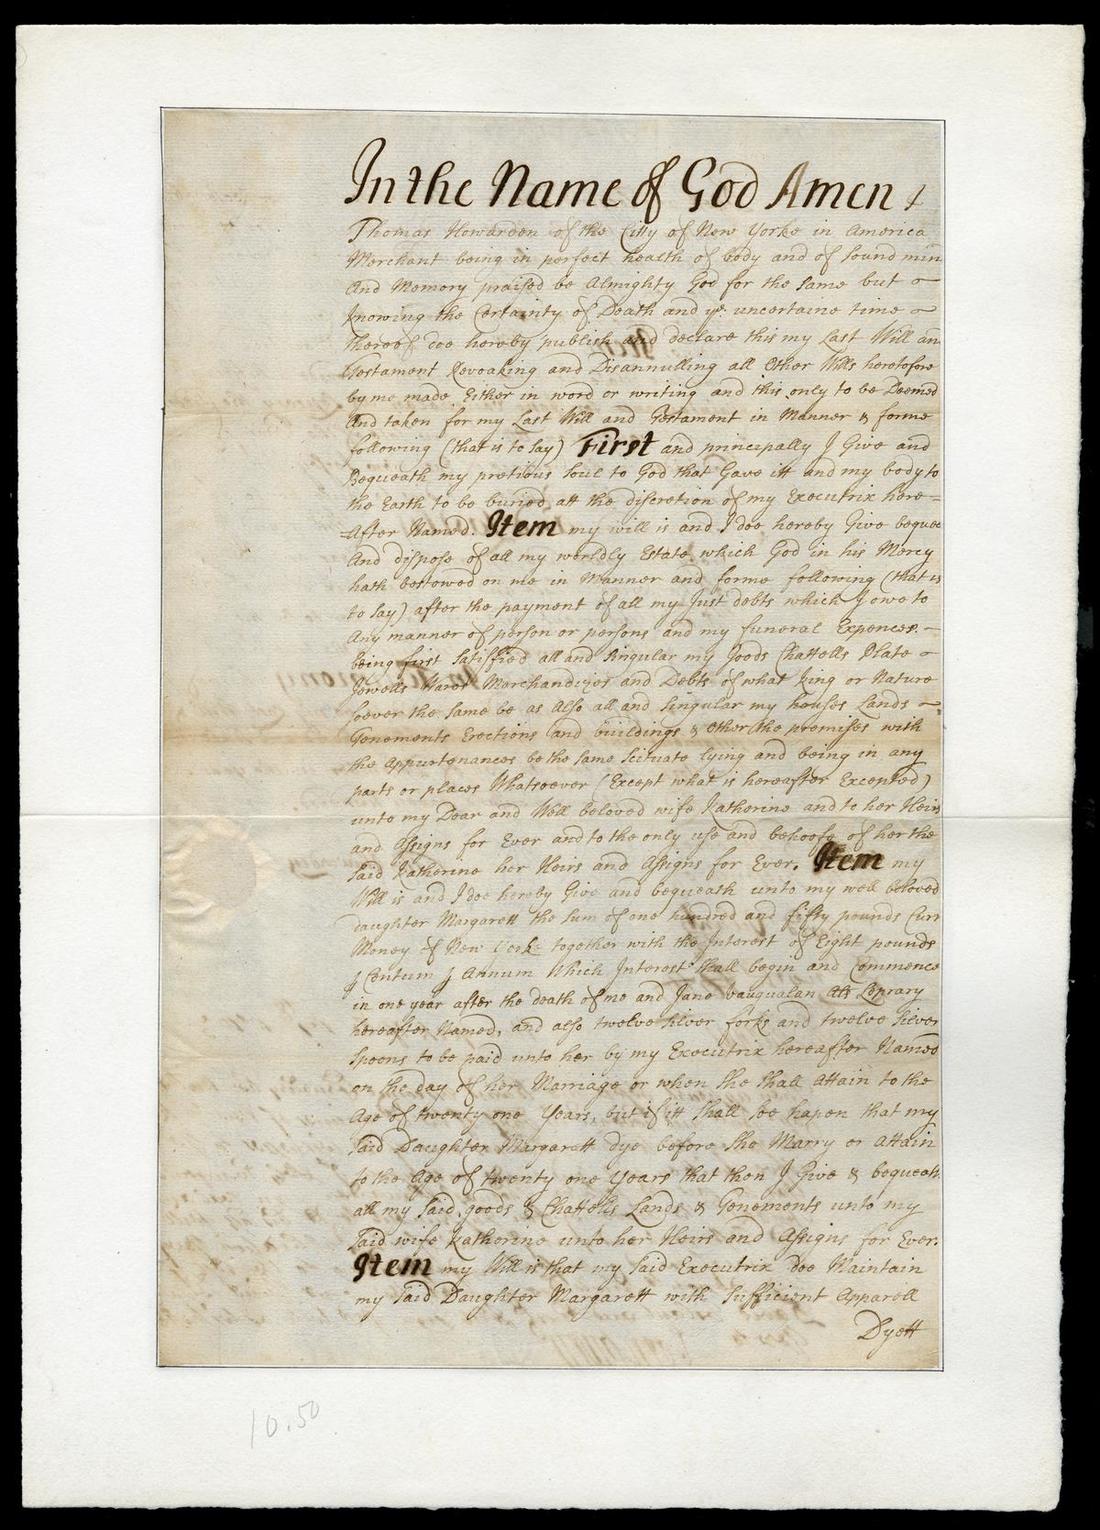 In the Name of God Amen I
Thomas Howarden of the Citty of New Yorke in America
Merchant being in perfect health of body and of sound min
And Memory praised be Almighty God for the same but
knowing the Certainty of Death and ye: uncertaine time
thereof doe hereby publish and declare this my Last Will an
Testament Revoaking and Disannulling all other Wills heretofore
by me made Either in word or writing and this only to be Deemed
And taken for my Last Will and Testament in Manner & forme
following (that is to say) First and principally I Give and
Bequeath my pretious soul to God that Gave itt and my body to
the Earth to be buried att the discretion of my Executrix here=
=After Named. Item my will is and I doe hereby Give beque
And dispose of all my worldly Estate which God in his Mercy
hath bestowed on me in Manner and forme following (that is
to say) after the payment of all my Just debts which I owe to
Any manner of person or persons and my funeral Expences.
being first satisfied all and singular my Goods Chattells Plate
Jewells Wares Merchandizes and Debts of what king or Nature
soever the same be as Also all and singular my houses Lands
Tenements Erections and buildings & other the premisses with
the appurtenances be the same Scituate lying and being in any
parts or places Whatsoever (Except what is hereafter Excepted)
unto my Dear and Well beloved wife Katherine and to her Heirs
and Assigns for Ever and to the only use and behoofe of her the
said Katherine her Heirs and Assigns for Ever. Item my
Will is and I doe hereby Give and bequeath unto my well beloved
daughter Margarett the sum of one hundred and fifty pounds Curr
Money of New Yorke together with the Interest of Eight pounds
p Centum p Annum Which Interest shall begin and Commence
in one year after the death of me and Jane vauqualan Als Leprary
hereafter Named, and also twelve silver forks and twelve silver
spoons to be paid unto her by my Executrix hereafter Named
on the day of her Marriage or when she shall Attain to the
Age of twenty one Years, but if itt shall soe hapen that my
said Daughter Margarett dye before she Marry or attain
to the Age of twenty one years that then I Give & bequeath
all my said goods & Chattells Lands & Tenements unto my
said wife Katherine unto her Heirs and Assigns for Ever.
Item my Will is that my said Executrix doe Maintain
my said Daughter Margarett with sufficient Apparell
Dyett
10.50